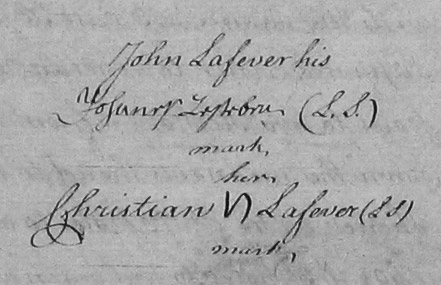 John Lafever his
(L.S.)
mark,
her
Christian Lafever (LS)
mark,